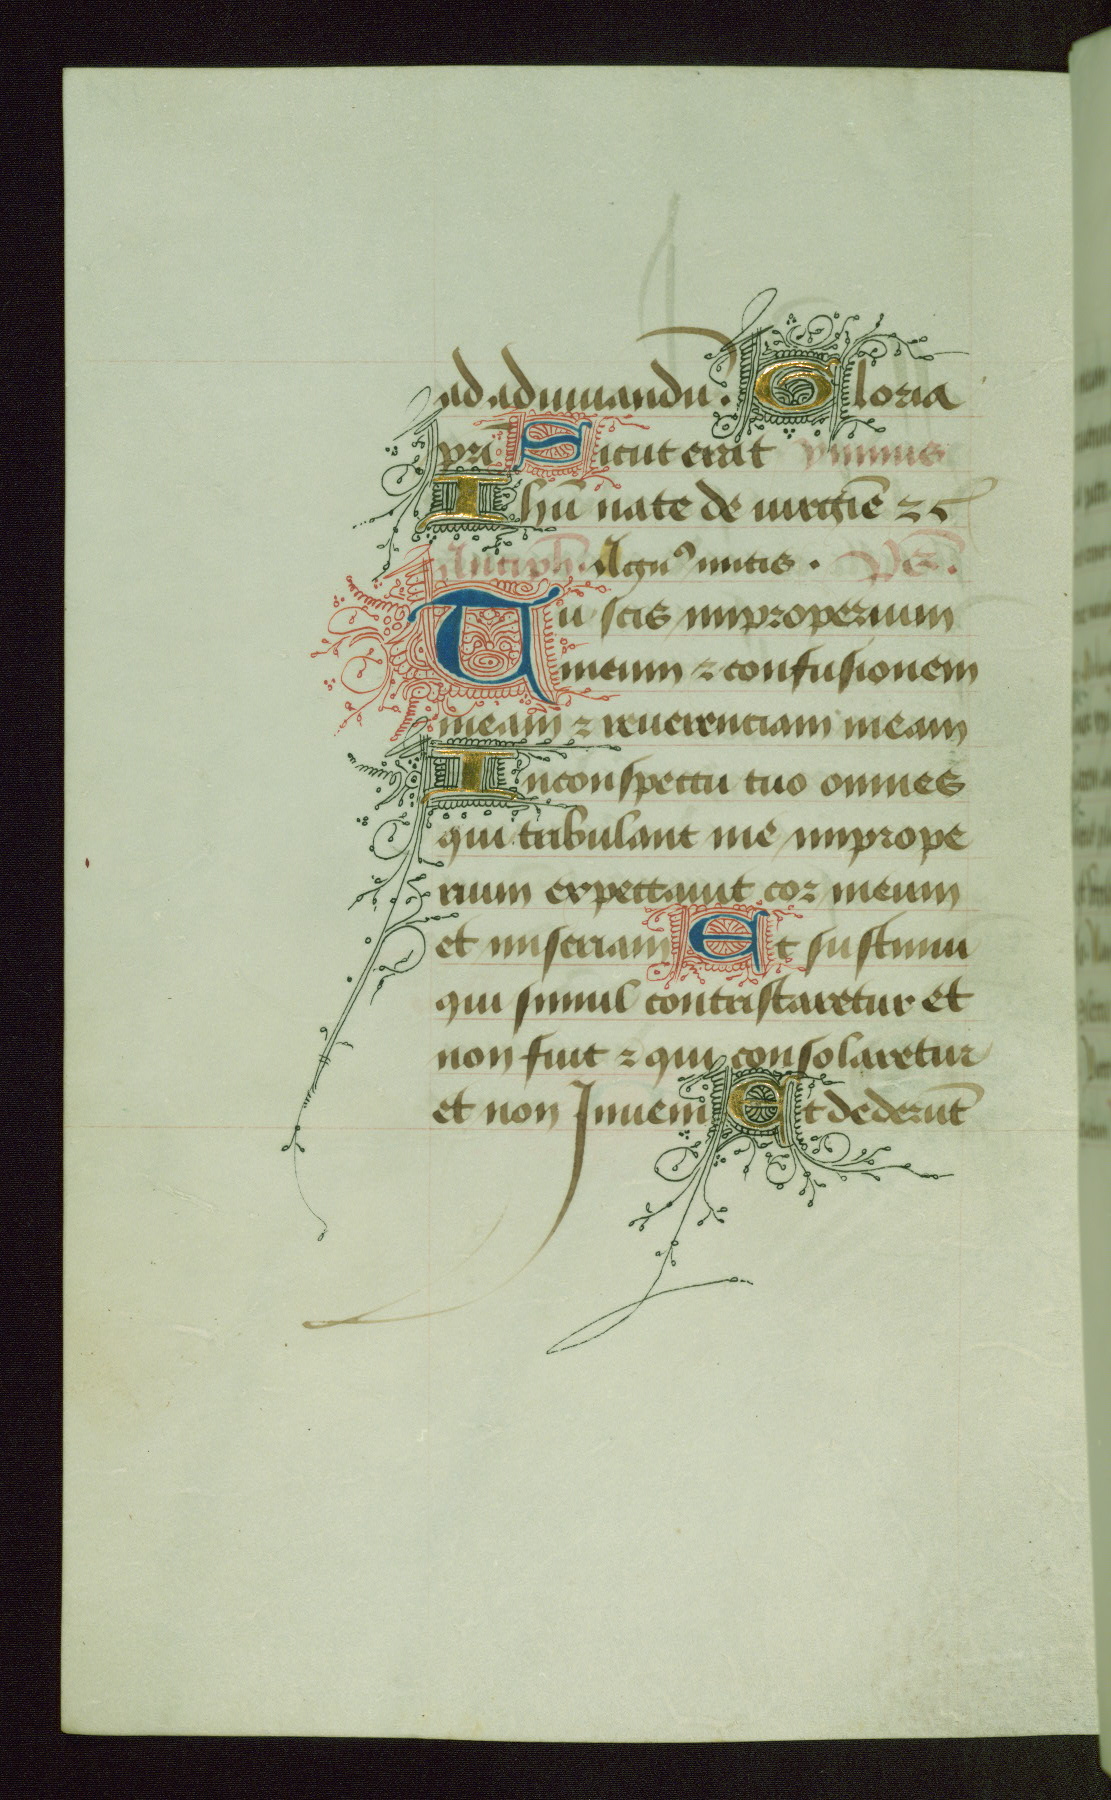 ad adiuuandū. Gloria
pri Sicut erat ymnus
Ihū nate de uirgīe ⁊c
Antiph. Agnꝰ mitis. Ps.
Tu scis improperium
meum ⁊ confusionem
meam ⁊ reuerenciam meam
In conspectu tuo omnes
qui tribulant me imprope
rium expectauit cor meum
et miseriam Et sustinui
qui simul contristaretur et
non fuit ⁊ qui consolaretur
et non Inueni Et dederūt